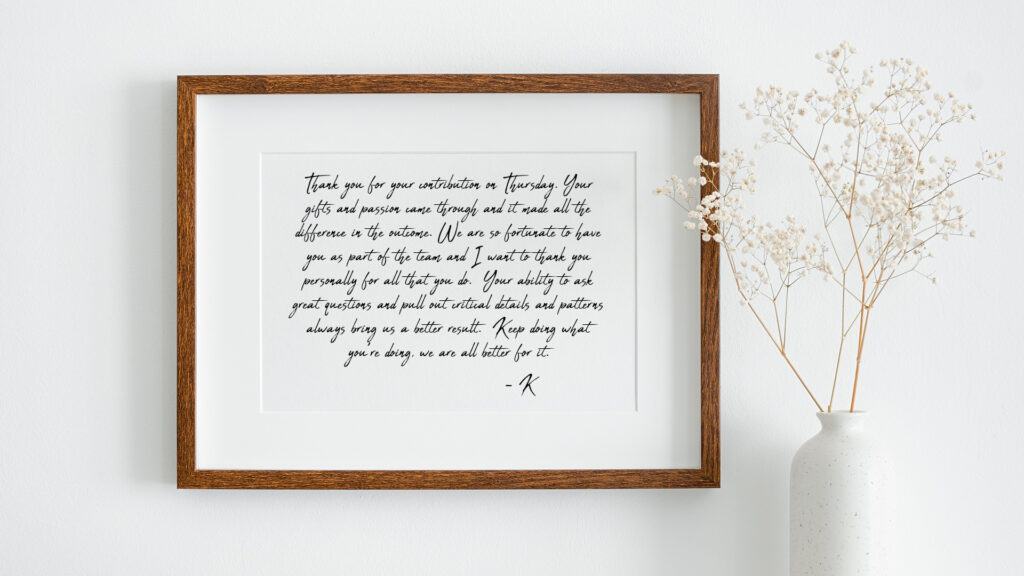 Thank you for your contribution on Thursday. Your
gifts and passion came through and it made all the
difference in the outcome. We are so fortunate to have
you as part of the team and I want to thank you
personally for all that you do. Your ability to ask
great questions and pull out critical details and patterns
always bring us a better result. Keep doing what
you're doing, we are all better for it.
- K